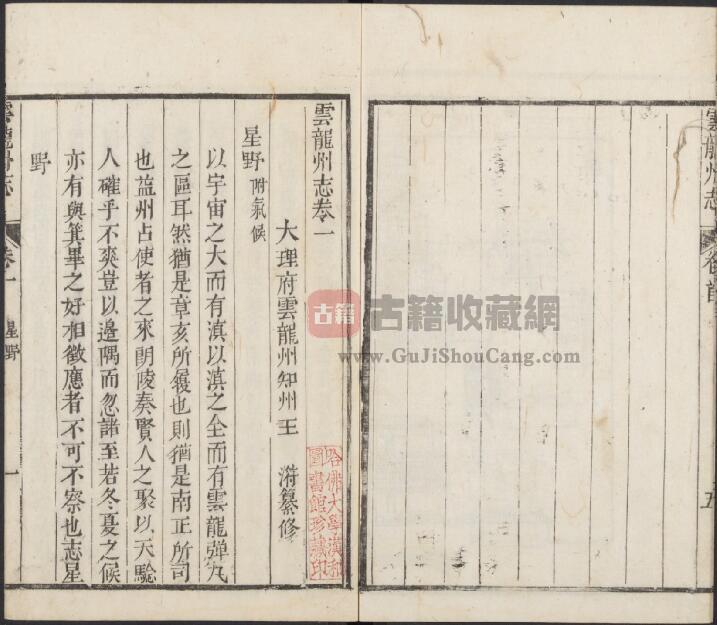 雲龍州志
卷首
五
雲龍州志卷一
大理府雲龍州知州王 㵂纂修
星野附氣候
以宇宙之大而有滇以滇之全而有雲龍彈丸
之區耳然猶是章亥所履也則猶是南正所司
也益州占使者之來朗陵奏賢人之聚以天驗
人確乎不爽豈以邊隅而忽諸至若冬夏之候
亦有與箕畢之好相徵應者不可不察也志星
野
雲龍州志
卷一
星野
一
哈佛大學漢和
圖書館珍藏印
古籍
古籍收藏網
www.GuJiShouCang.com